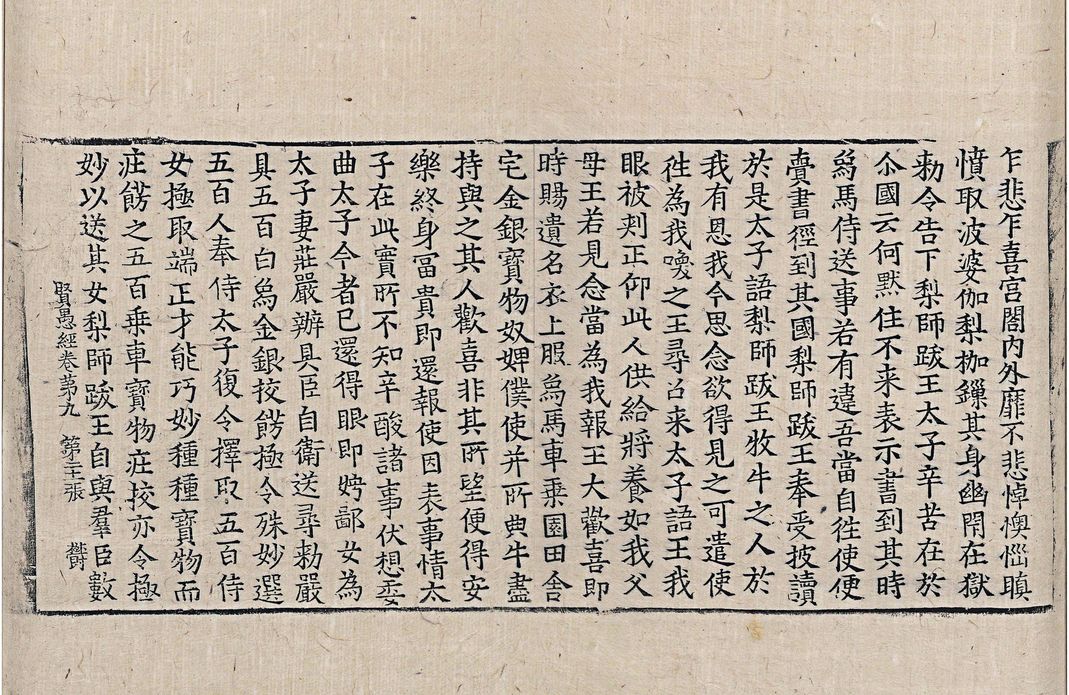 乍悲乍喜宫閤内外靡不悲悼懊惱瞋
憤取波婆伽梨枷鏁其身幽閇在獄
勑令告下梨師跋王太子辛苦在於
尒國云何黙住不来表示書到其時
爲馬侍送事若有違吾當自徃使便
賷書徑到其國梨師跋王奉受披讀
於是太子語梨師跋王牧牛之人於
我有恩我今思念欲得見之可遣使
徃為我喚之王尋召来太子語王我
眼被刾正仰此人供給將養如我父
母王若見念當為我報王大歡喜即
時賜遺名衣上服爲馬車乗園田舎
宅金銀寶物奴婢僕使并所典牛盡
持與之其人歡喜非其所望便得安
樂終身冨貴即還報使因表事情太
子在此實所不知辛酸諸事伏想委
曲太子今者已還得眼即娉鄙女為
太子妻莊嚴辦具臣自衛送尋勑嚴
具五百白爲金銀挍餝極令殊妙選
五百人奉侍太子復令擇取五百侍
女極取端正才能巧妙種種寶物而
莊餝之五百乗車寶物莊挍亦令極
妙以送其女梨師跋王自與羣臣數
賢愚經卷第九 第二十張 欝